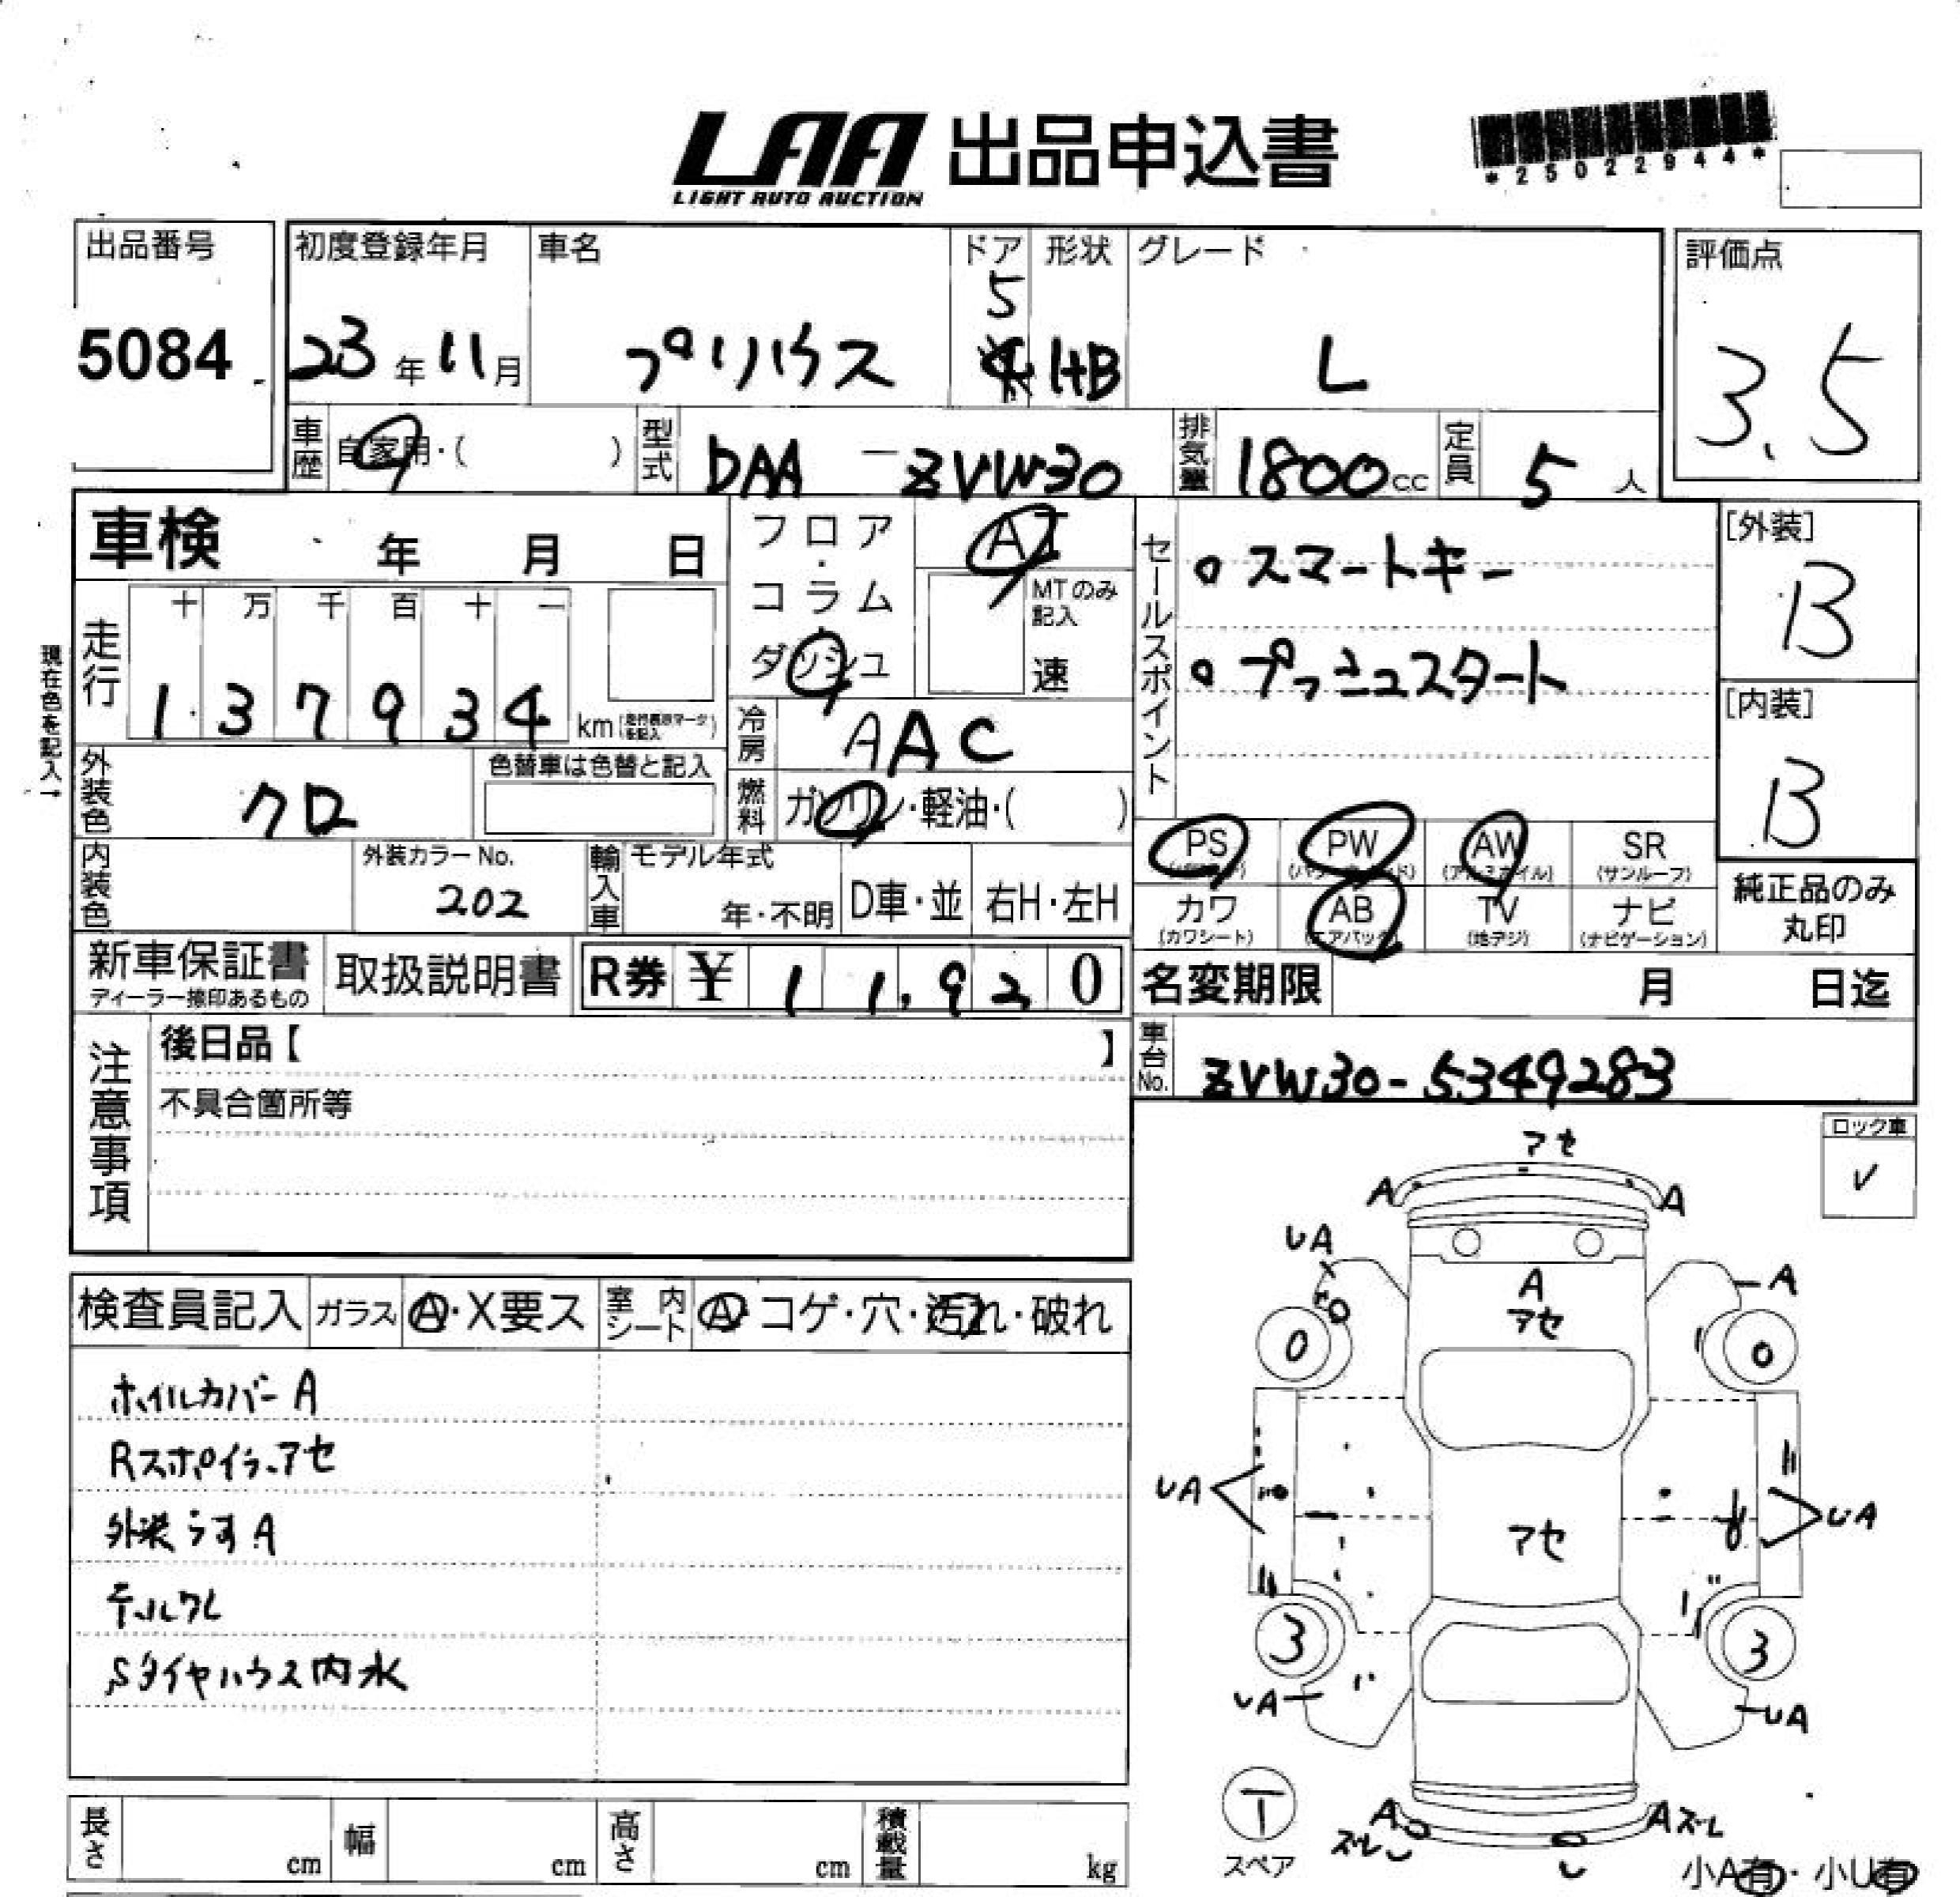 LAA 出品申込書
LIGHT AUTO AUCTION
*25022944*
出品番号
5084
初度登録年月
23年11月
車名
プリウス
ドア
5
形状
HB
グレード
L
評価点
3.5
車歴
自家用・( )
型式
DAA － ZVW30
排気量
1800cc
定員
5人
車検 年 月 日
フロア・コラム・ダッシュ
AT
MTのみ記入
速
セールスポイント
○ スマートキー
○ プッシュスタート
[外装]
B
[内装]
B
現在色を記入→
走行
十 万 千 百 十 一
1 3 7 9 3 4 km
冷房
AAC
外装色
クロ
色替車は色替と記入
燃料
ガソリン・軽油・( )
内装色
外装カラーNo.
202
輸入車
モデル年式
年・不明
D車・並
右H・左H
PS
PW
AW
(アルミホイル)
SR
(サンルーフ)
カワ
(カワシート)
AB
(エアバック)
TV
(地デジ)
ナビ
(ナビゲーション)
純正品のみ
丸印
新車保証書
ディーラー捺印あるもの
取扱説明書
R券 ¥ 11,920
名変期限 月 日迄
車台No.
ZVW30-5349283
注意事項
後日品【 】
不具合箇所等
ロック車
✓
検査員記入
ガラス
A・X要ス
室内シート
A・コゲ・穴・汚れ・破れ
ホイルカバーA
Rスポイラーアセ
外装うすA
Sタイヤハウス内水
アセ
A
A
UA
A
A
アセ
0
0
UA
アセ
UA
3
3
UA
UA
T
スペア
A
ズレ
U
U
Aズレ
小A有・小U有
長さ cm
幅 cm
高さ cm
積載量 kg